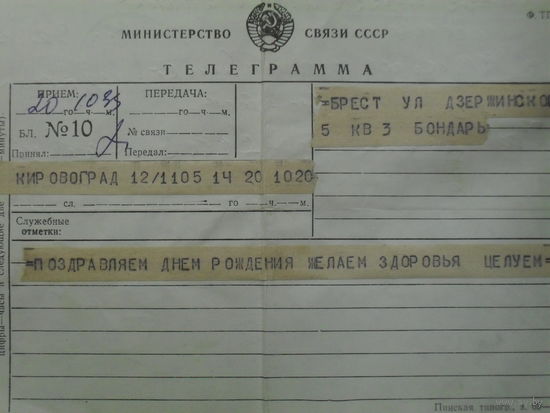 Ф. ТГ
МИНИСТЕРСТВО СВЯЗИ СССР
ТЕЛЕГРАММА
ПРИЕМ: ПЕРЕДАЧА:
20 1035
го ч. м. го ч. м.
БЛ. №10 № связи
Принял: Передал:
=БРЕСТ УЛ ДЗЕРЖИНСКО
5 КВ 3 БОНДАРЬ
КИРОВОГРАД 12/1105 14 20 1020
сл. го ч. м.
Служебные
отметки:
=ПОЗДРАВЛЯЕМ ДНЕМ РОЖДЕНИЯ ЖЕЛАЕМ ЗДОРОВЬЯ ЦЕЛУЕМ=
Цифры—часы и следующие две минуты)
Пинская типогр., з.